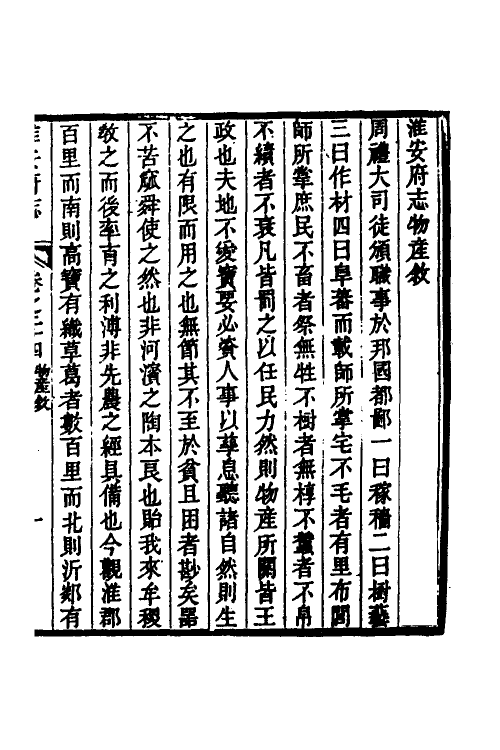 淮安府志物產敘
周禮大司徒頒職事於邦國都鄙一曰稼穡二曰樹藝
三曰作材四曰阜蕃而載師所掌宅不毛者有里布閭
師所掌庶民不畜者祭無牲不樹者無椁不蠶者不帛
不績者不衰凡皆罰之以任民力然則物產所關皆王
政也夫地不愛寶要必資人事以孳息聽諸自然則生
之也有限而用之也無節其不至於貧且困者尠矣器
不苦窳舜使之然也非河濱之陶本良也貽我來牟稷
敎之而後率育之利溥非先農之經具備也今觀淮郡
百里而南則高寶有織草葛者數百里而北則沂郯有
淮安府志
卷之二十四物產敘
一